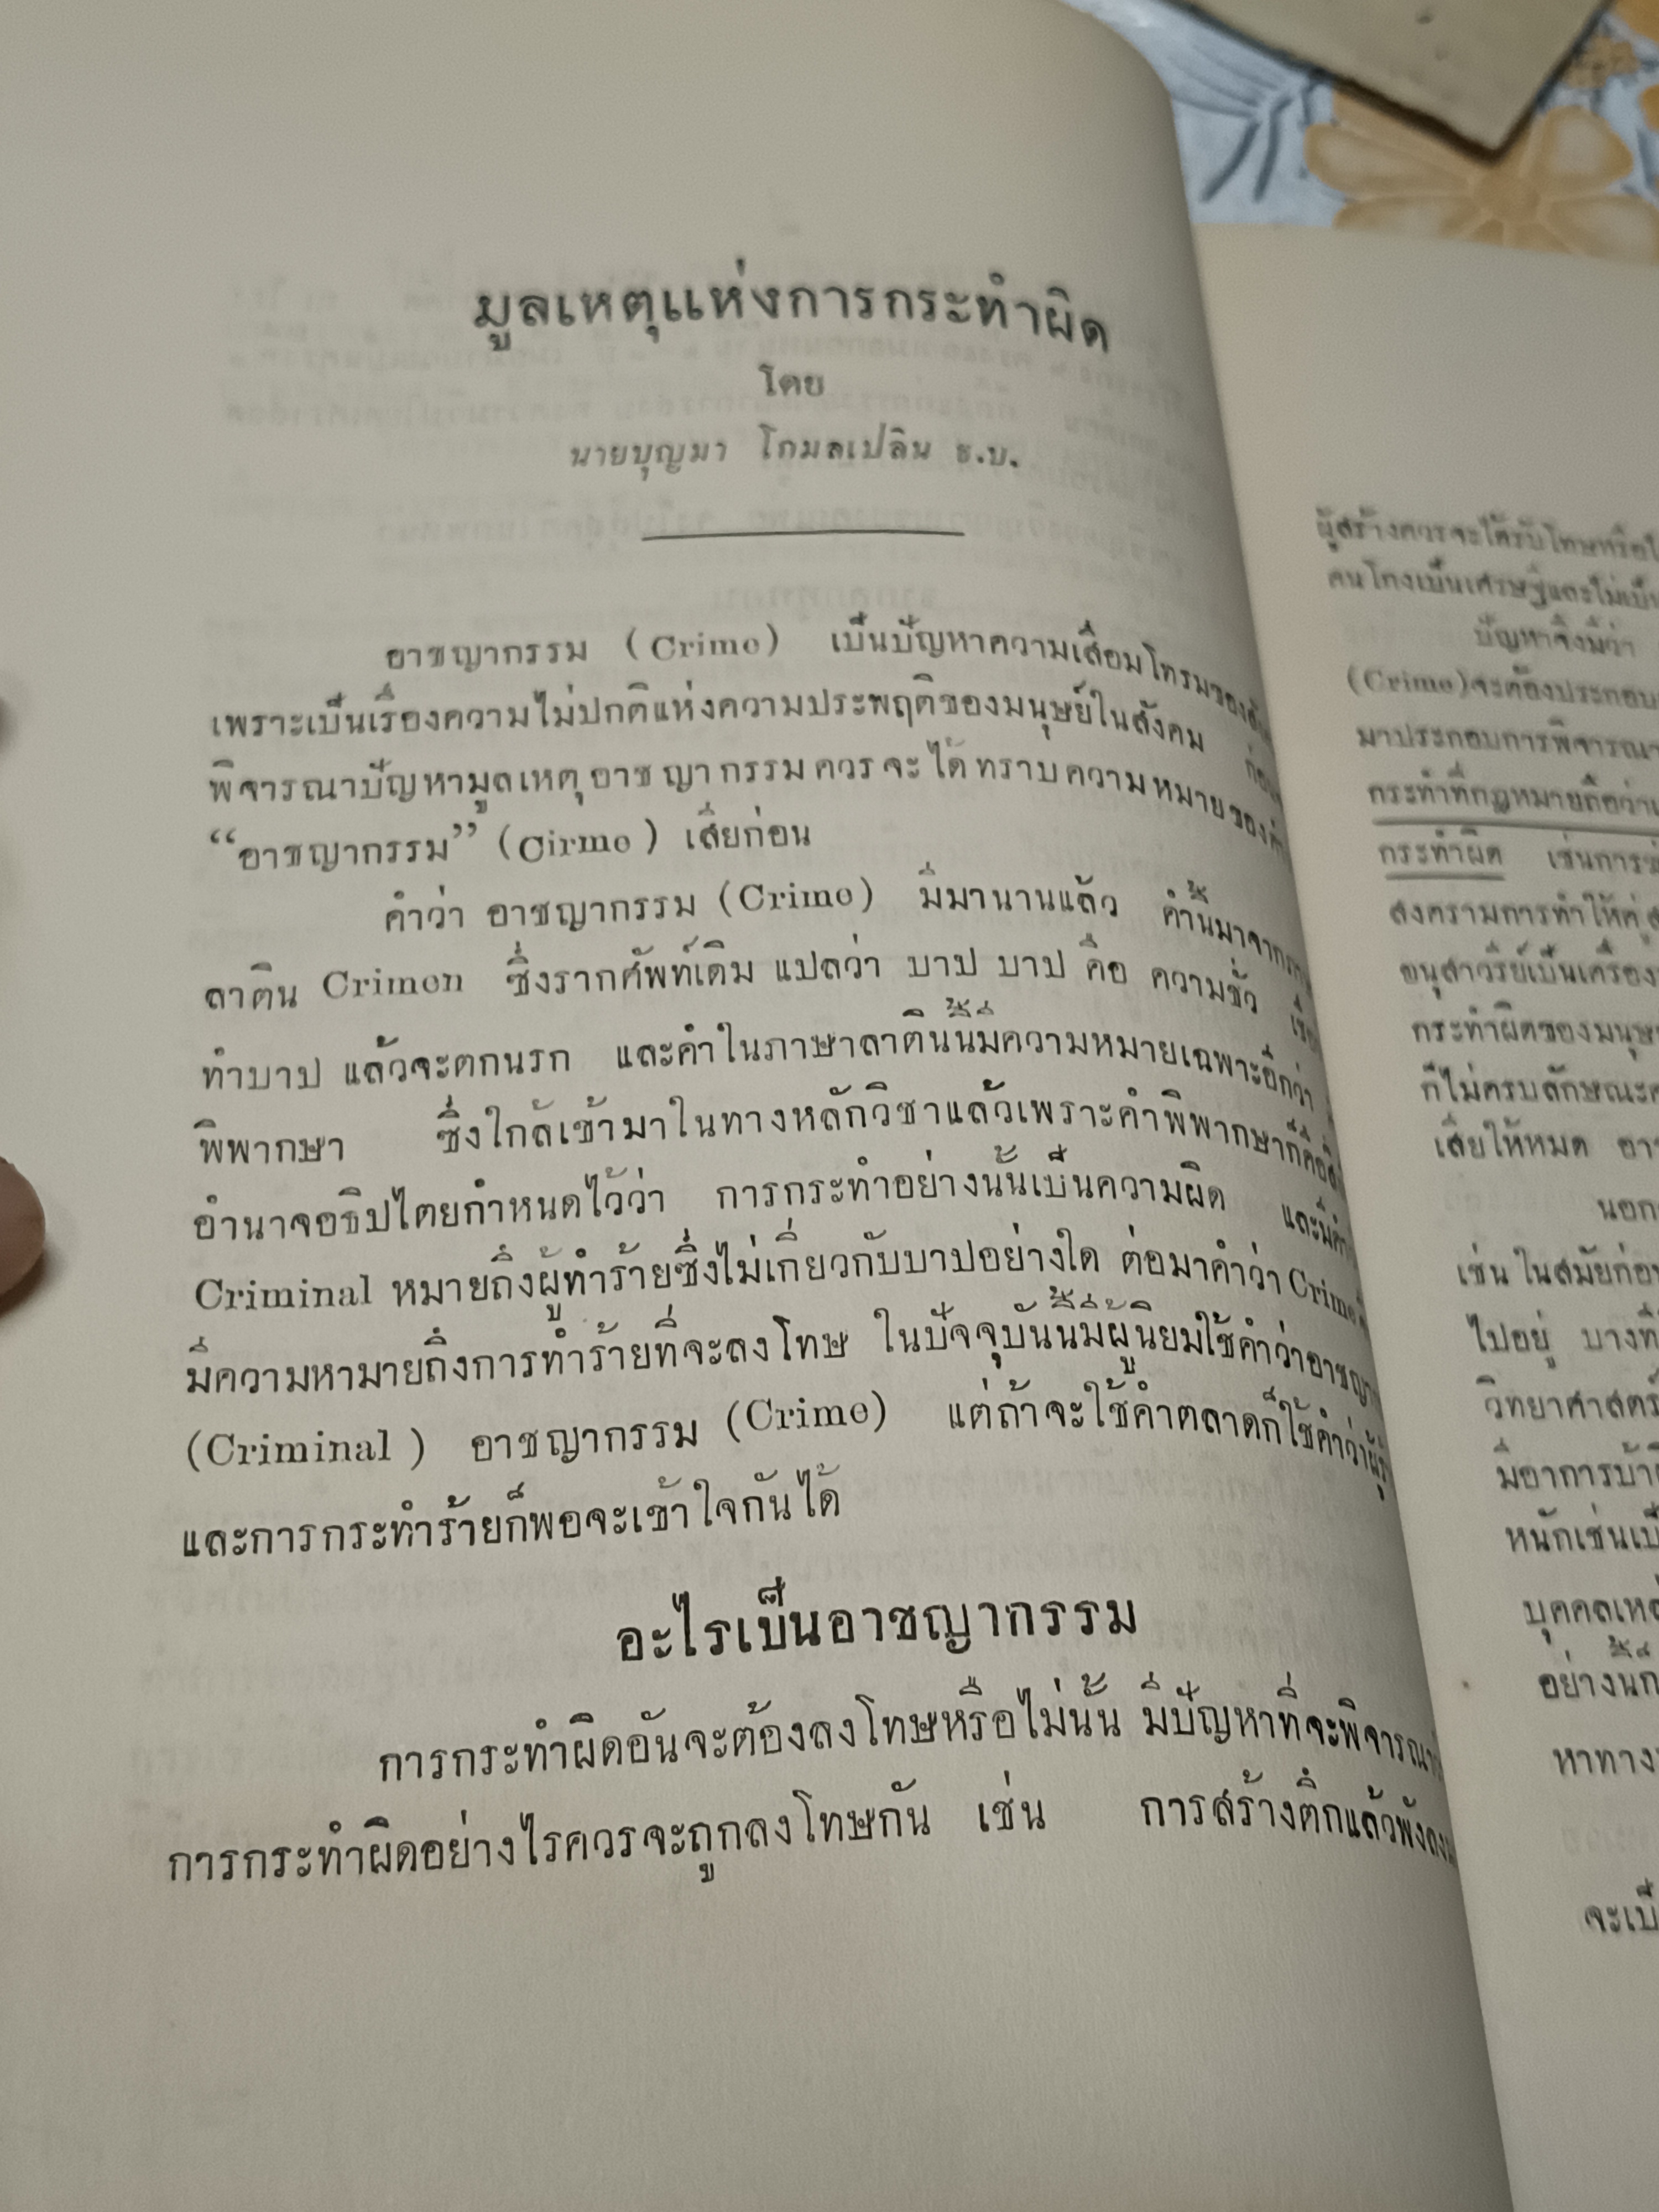 มูลเหตุแห่งการกระทำผิด
โดย
นายบุญมา โกมลเปลิน ธ.บ.
อาชญากรรม (Crime) เป็นปัญหาความเสื่อมโทรมของ
เพราะเป็นเรื่องความไม่ปกติแห่งความประพฤติของมนุษย์ในสังคม ก่อน
พิจารณาปัญหามูลเหตุอาชญากรรมควรจะได้ทราบความหมายของคำ
“อาชญากรรม” (Cirme) เสียก่อน
คำว่า อาชญากรรม (Crime) มีมานานแล้ว คำนี้มาจาก
ลาติน Crimen ซึ่งรากศัพท์เดิม แปลว่า บาป บาป คือ ความชั่ว
ทำบาป แล้วจะตกนรก และคำในภาษาลาตินนี้มีความหมายเฉพาะอีกว่า
พิพากษา ซึ่งใกล้เข้ามาในทางหลักวิชาแล้วเพราะคำพิพากษาก็คือ
อำนาจอธิปไตยกำหนดไว้ว่า การกระทำอย่างนั้นเป็นความผิด และมีคำ
Criminal หมายถึงผู้ทำร้ายซึ่งไม่เกี่ยวกับบาปอย่างใด ต่อมาคำว่า Crime
มีความหามายถึงการทำร้ายที่จะลงโทษ ในปัจจุบันนี้มีผู้นิยมใช้คำว่าอาชญา
(Criminal) อาชญากรรม (Crime) แต่ถ้าจะใช้คำตลาดก็ใช้คำว่าผู้
และการกระทำร้ายก็พอจะเข้าใจกันได้
อะไรเป็นอาชญากรรม
การกระทำผิดอันจะต้องลงโทษหรือไม่นั้น มีปัญหาที่จะพิจารณา
การกระทำผิดอย่างไรควรจะถูกลงโทษกัน เช่น การสร้างตึกแล้วพังลง
ผู้สร้างควรจะได้รับโทษหรือ
คนโกงเป็นเศรษฐีและไม่เป็น
ปัญหาจึงมีว่า
(Crime)จะต้องประกอบ
มาประกอบการพิจารณา
กระทำที่กฎหมายถือว่า
กระทำผิด เช่นการ
สงครามการทำให้คู่
อนุสาวรีย์เป็นเครื่อง
กระทำผิดของมนุษ
ก็ไม่ครบลักษณะ
เสียให้หมด อา
นอก
เช่น ในสมัยก่อน
ไปอยู่ บางที
วิทยาศาสตร์
มีอาการบ้า
หนักเช่นเป็
บุคคลเหล่
อย่างนี้ก็
หาทาง
จะเป็